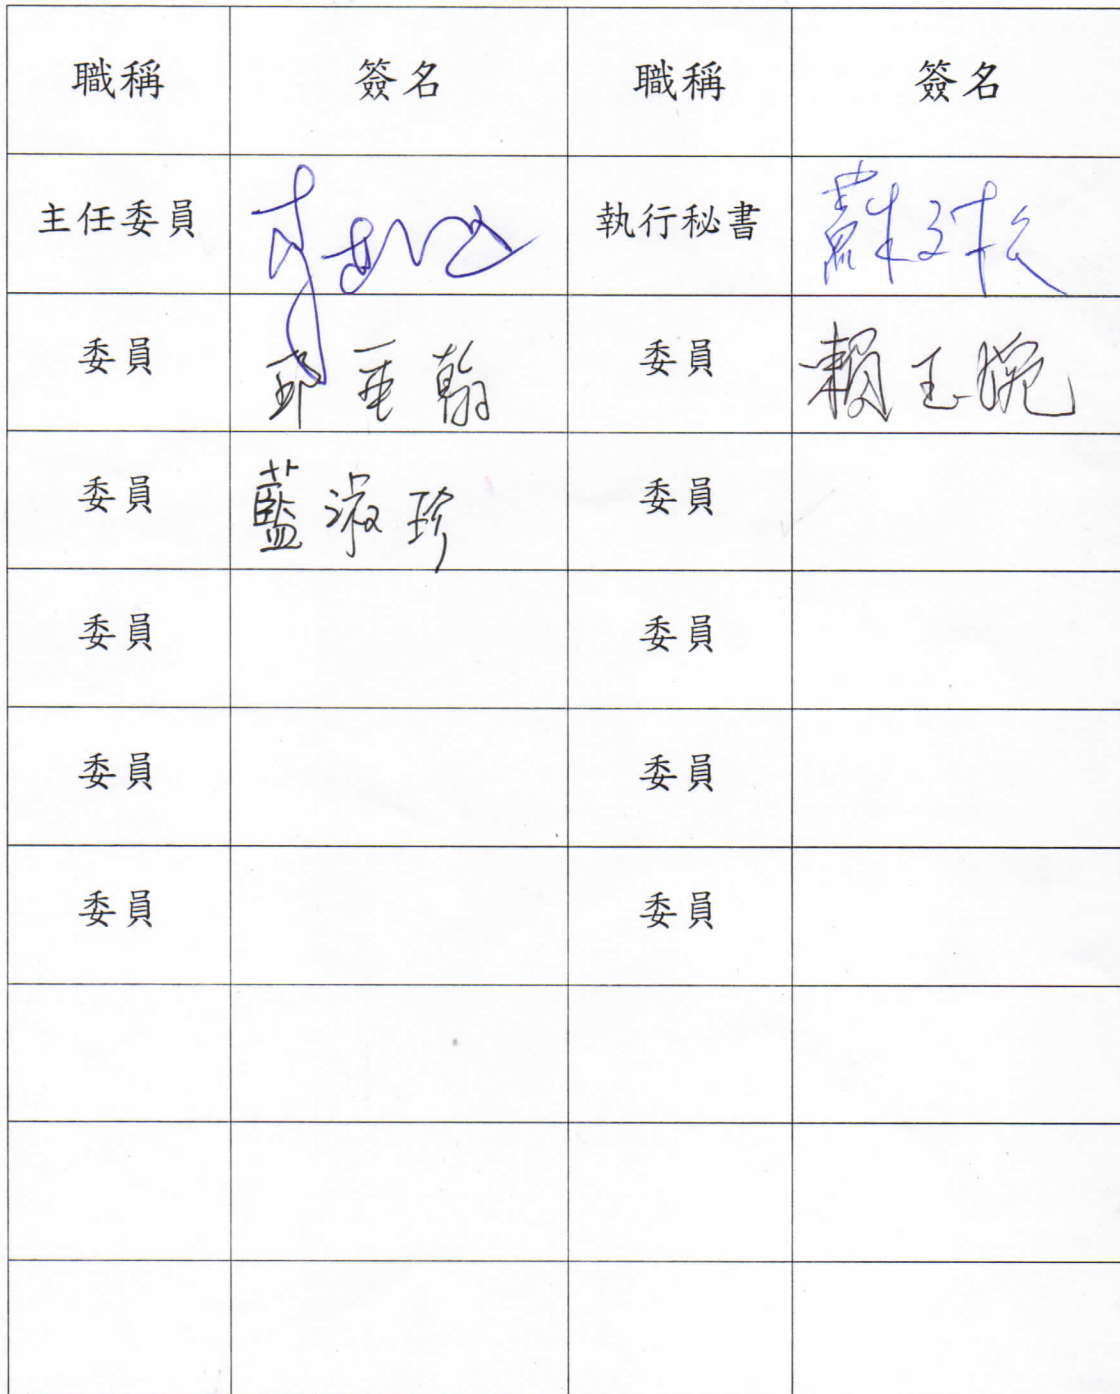 職稱 簽名 職稱 簽名
主任委員 執行秘書 蘇文松
委員 邱垂翰 委員 賴玉婉
委員 藍淑珍 委員
委員 委員
委員 委員
委員 委員